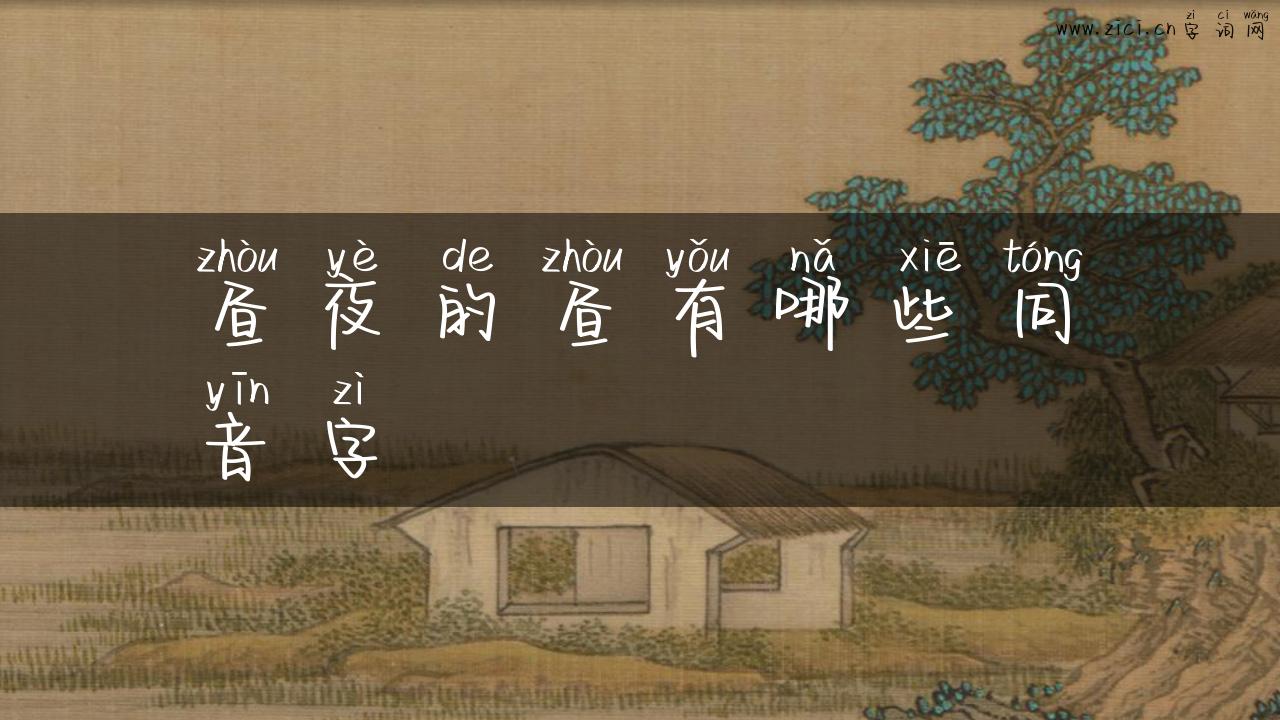 zì cí wǎng
www.zici.cn 字 词 网
zhòu yè de zhòu yǒu nǎ xiē tóng
昼 夜 的 昼 有 哪 些 同
yīn zì
音 字